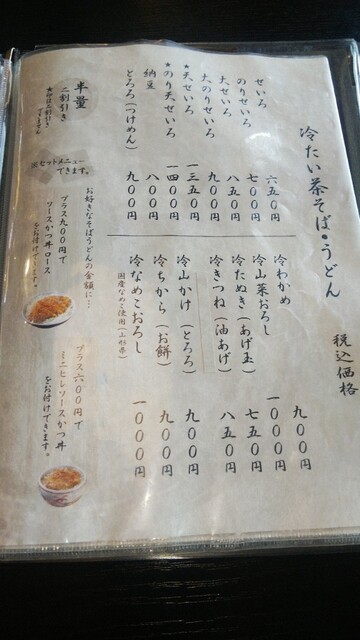 冷たい茶そば・うどん
税込価格
せいろ 六五〇円
のりせいろ 七〇〇円
大せいろ 八五〇円
大のりせいろ 九〇〇円
★天せいろ 一三五〇円
★のり天せいろ 一四〇〇円
納豆 八〇〇円
とろろ(つけめん) 九〇〇円
半量
二割引き
できません
冷わかめ 九〇〇円
冷山菜おろし 一〇〇〇円
冷たぬき(あげ玉) 七五〇円
冷きつね(油あげ) 八五〇円
冷山かけ(とろろ) 九〇〇円
冷ちから(お餅) 九〇〇円
冷なめこおろし 一〇〇〇円
国産なめこ使用(山形県)
※セットメニューできます。
お好きなそばうどんの金額に…
プラス九〇〇円で
ソースかつ丼ロース
をお付けできます。
プラス六〇〇円で
ミニヒレソースかつ丼
をお付けできます。